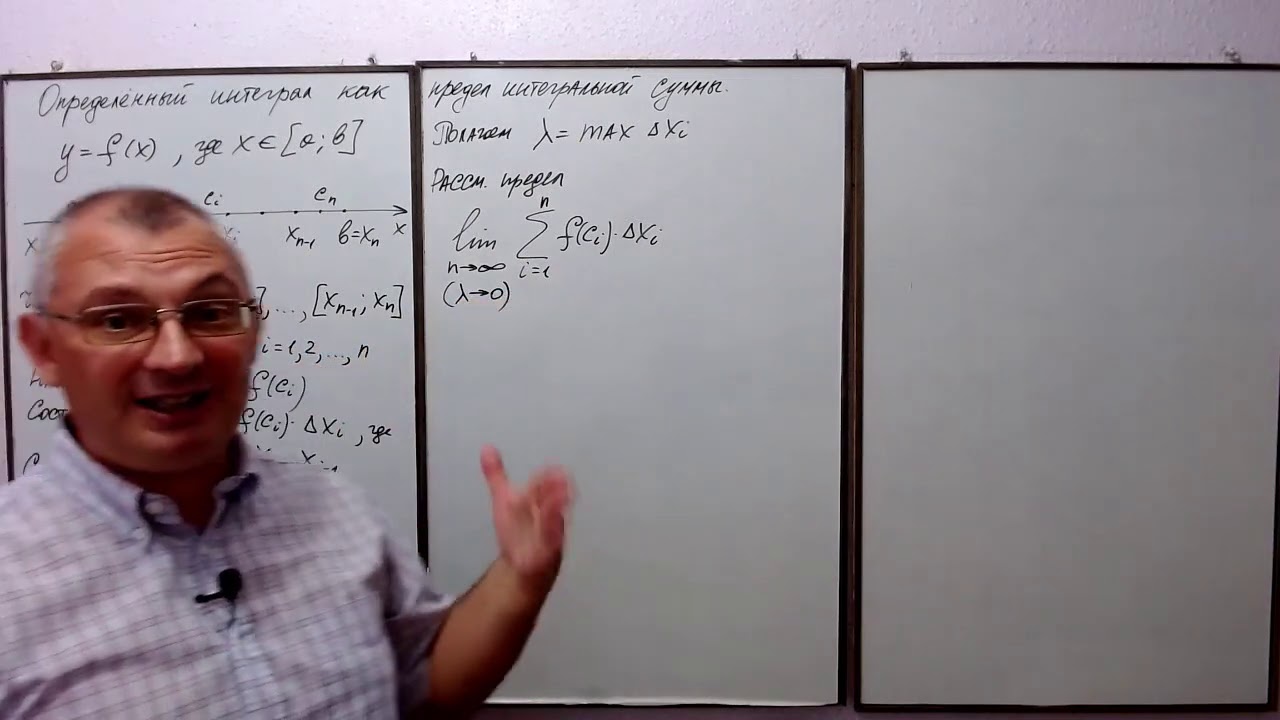 Определённый интеграл как
y = f(x), где x ∈ [a; b]
ci cn
xn-1 b=xn x
],..., [xn-1; xn]
i = 1,2,...,n
f(ci)
Сост
f(ci)·Δxi, где
предел интегральной суммы.
Полагаем λ = max Δxi
Рассм. предел
lim Σ f(ci)·Δxi
n→∞ i=1
(λ→0)